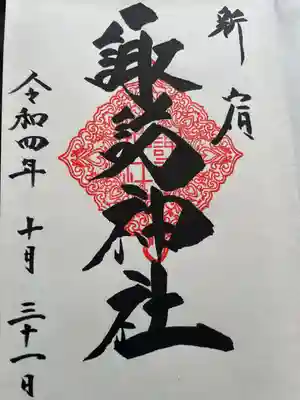 新宿
諏訪神社
令和四年 十月 三十一日